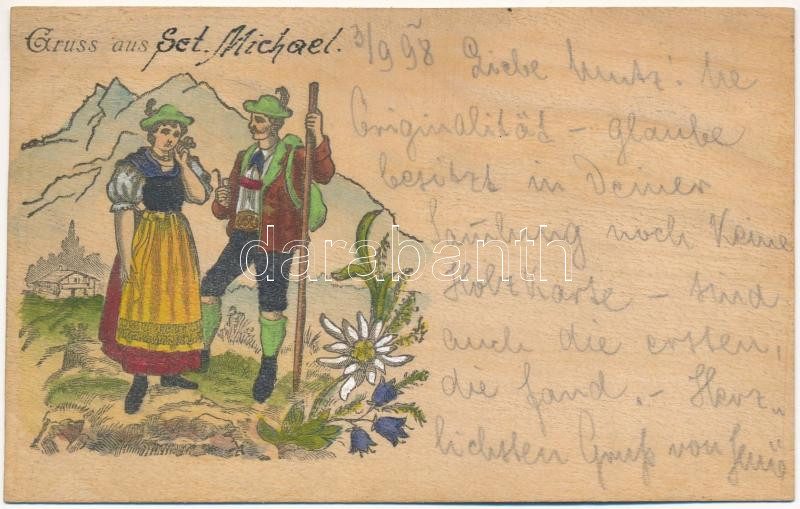 Gruss aus Sct. Michael.
3/9 98 Liebe
Originalität – glaube
besitzt in Deiner
noch keine
Holzkarte – sind
auch die ersten,
die fand. – Herz-
lichsten Gruß von
darabanth